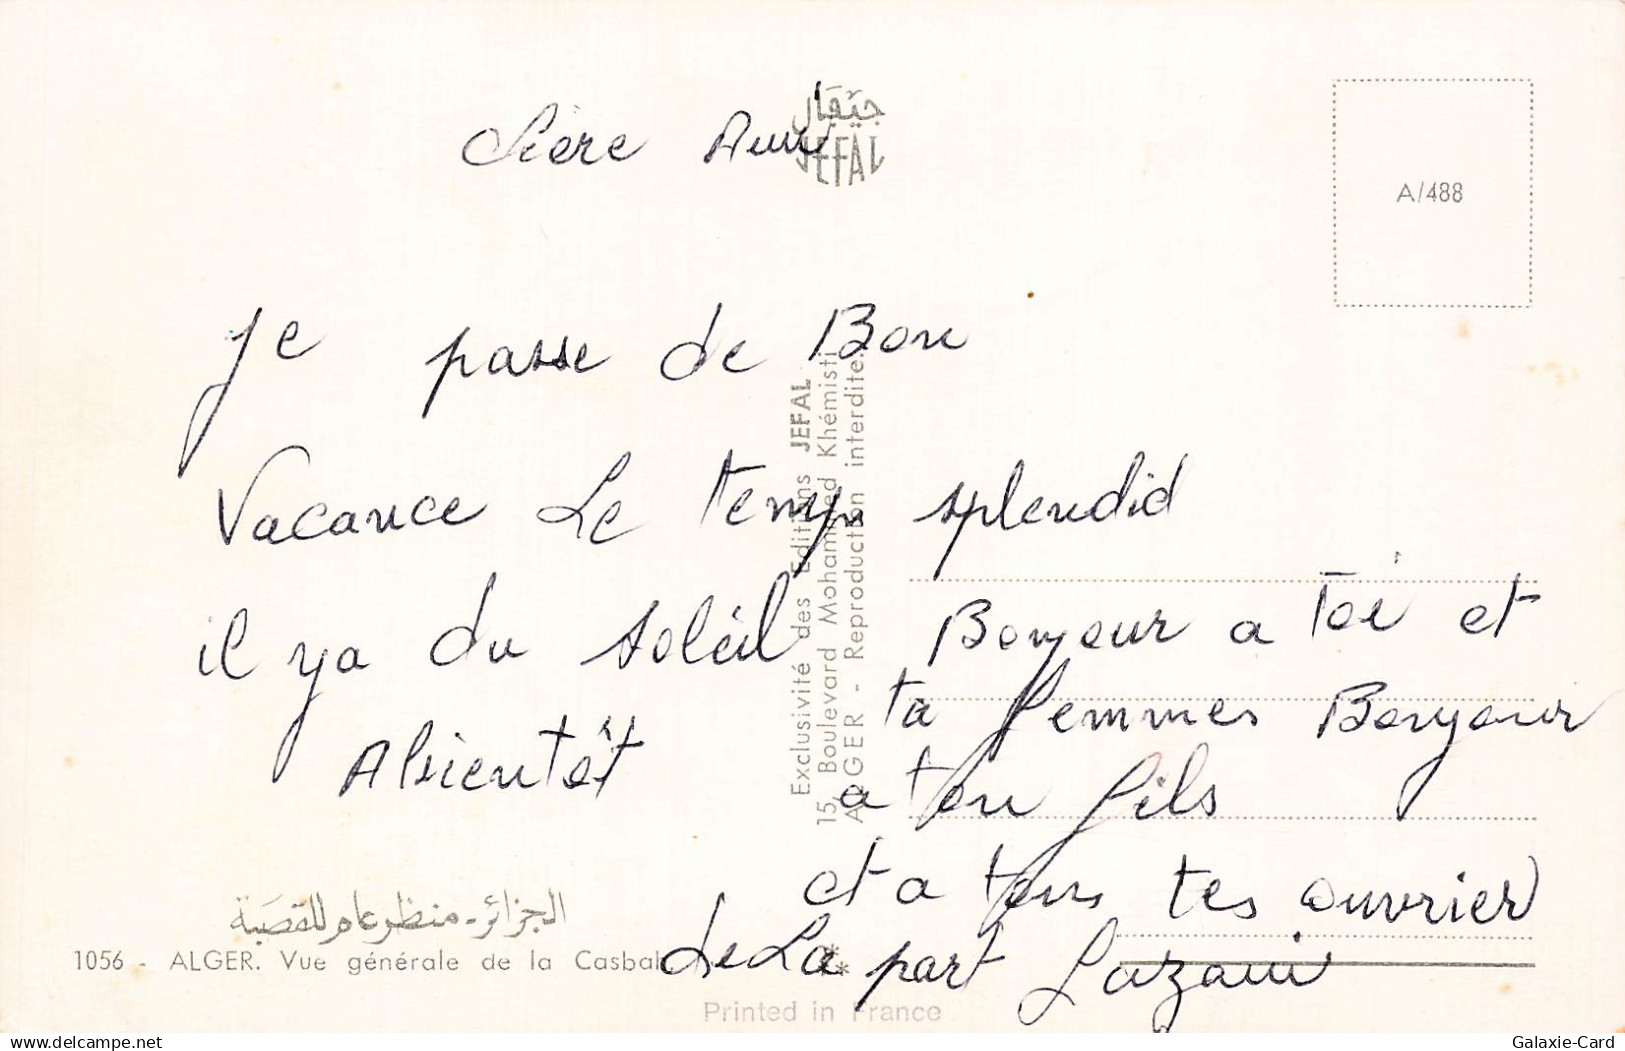 جيفال
JEFAL
A/488
Chère Ami
Je passe de Bon
Vacance Le temp splendid
il ya du soléil
Abientôt
Bonjour a Toi et
ta femmes Bonjour
a ton fils
et a tous tes ouvrier
de La part Lazaui
Exclusivité des Editions JEFAL
15, Boulevard Mohammed Khémisti
ALGER - Reproduction interdite.
الجزائر - منظر عام للقصبة
1056 - ALGER. Vue générale de la Casbah
Printed in France
Galaxie-Card